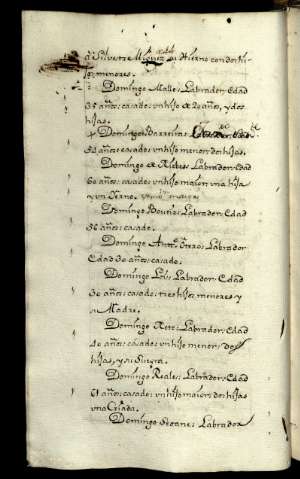 Silvestre Miguez su Hierno con dos hi-
jos menores.
Domingo Malle: Labrador: Edad
35 años: casado: un hijo de 20 años, y dos
hijas.
Domingo Barreiro:
52 años: casado: un hijo menor: dos hijas.
Domingo de Labrador: Edad
60 años: casado: un hijo maior: una hija
y un Yerno.
Domingo Labrador: Edad
36 años: casado.
Domingo Labrador
Edad 30 años: casado.
Domingo Labrador: Edad
50 años: casado: tres hijos menores y
su Madre.
Domingo Labrador: Edad
40 años: casado: un hijo menor: dos
hijas, y su Suegra.
Domingo Reales: Labrador: Edad
61 años: casado: un hijo maior: dos hijas
una Criada.
Domingo Seoane: Labrador